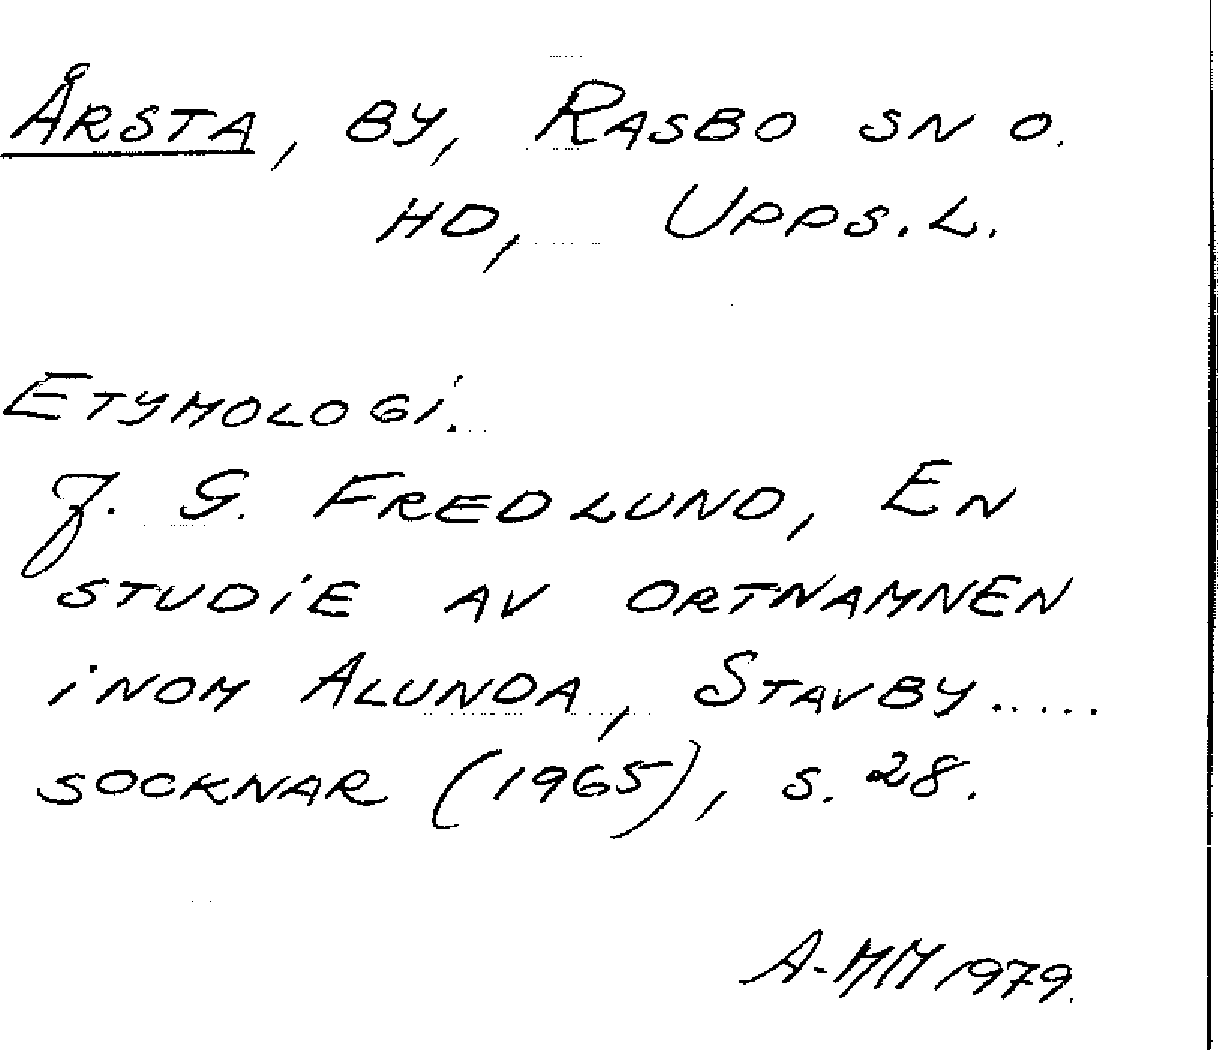 Årsta, by, Rasbo sn o.
hd, Upps. l.
Etymologi.
J. G. Fredlund, En
studie av ortnamnen
inom Alunda, Stavby.....
socknar (1965), s. 28.
A-MM 1979.